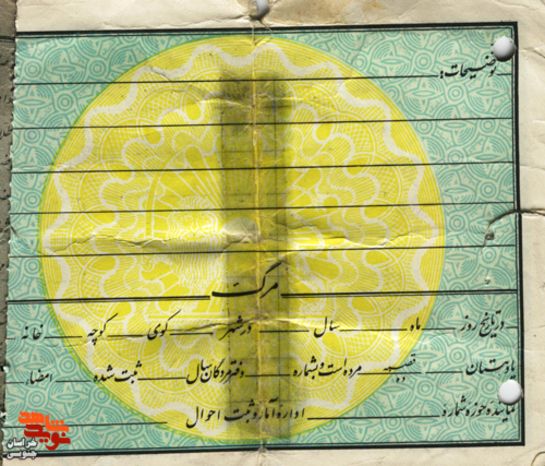 توضیحات:
مرگ
در تاریخ روز ماه سال در شهر کوی کوچه خانه
یا دستان قصبه ده مرده است و بشماره دفتر مردگان سال ثبت شده امضاء
نماینده حوزه شماره اداره آمار و ثبت احوال
نوید شاهد
خراسان جنوبی